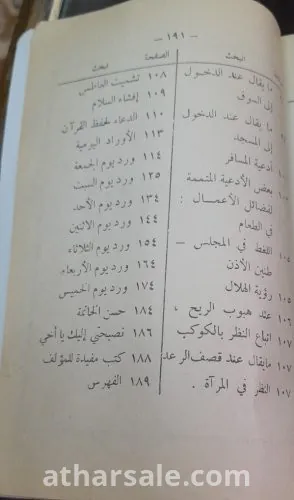 - ١٩١ -
البحث
ما يقال عند الدخول
إلى السوق
ما يقال عند الدخول
إلى المسجد
أدعية المسافر
بعض الأدعية المتممة
لفضائل الأعمال :
في الطعام
١٠٥ اللغط في المجلس -
طنين الأذن
١٠٥ رؤية الهلال
١٠٦ عند هبوب الريح ،
١٠٧ اتباع النظر بالكوكب
١٠٧ مايقال عند قصف الرعد
١٠٧ النظر في المرآة .
الصفحة البحث
١٠٨ تشميت العاطس
١٠٩ إفشاء السلام
١١٠ الدعاء لحفظ القرآن
١١٣ الأوراد اليومية
١١٤ ورد يوم الجمعة
١٢٥ ورد يوم السبت
١٣٤ ورد يوم الأحد
١٤٤ ورد يوم الاثنين
١٥٤ ورد يوم الثلاثاء
١٦٤ ورد يوم الأربعاء
١٧٤ ورد يوم الخميس
١٨٤ حسن الخاتمة
١٨٦ نصيحتي إليك يا أخي
١٨٨ كتب مفيدة للمؤلف
١٨٩ الفهرس
atharsale.com